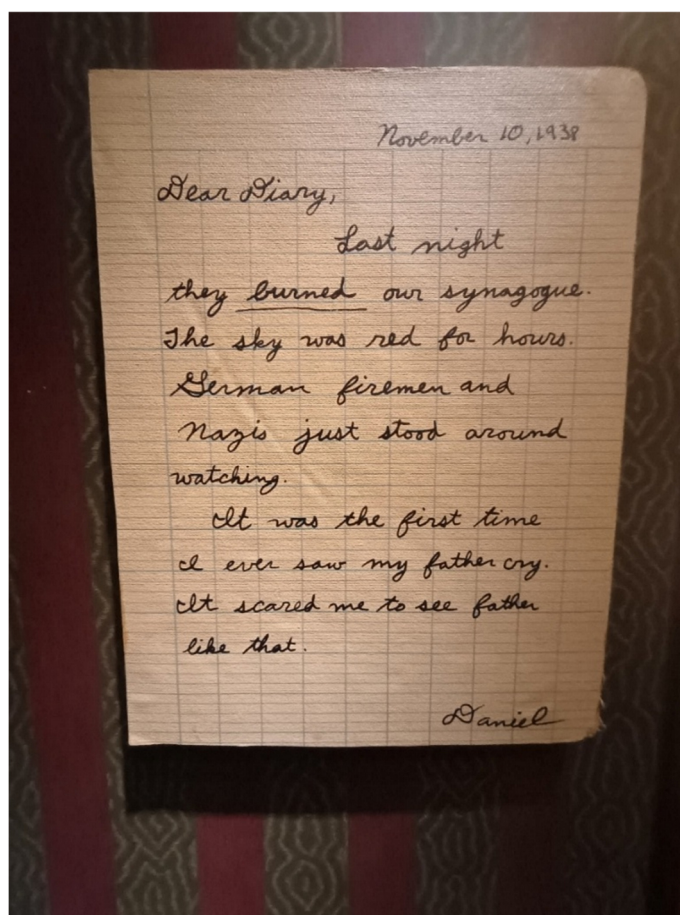 November 10, 1938
Dear Diary,
Last night
they burned our synagogue.
The sky was red for hours.
German firemen and
Nazis just stood around
watching.
It was the first time
I ever saw my father cry.
It scared me to see father
like that.
Daniel